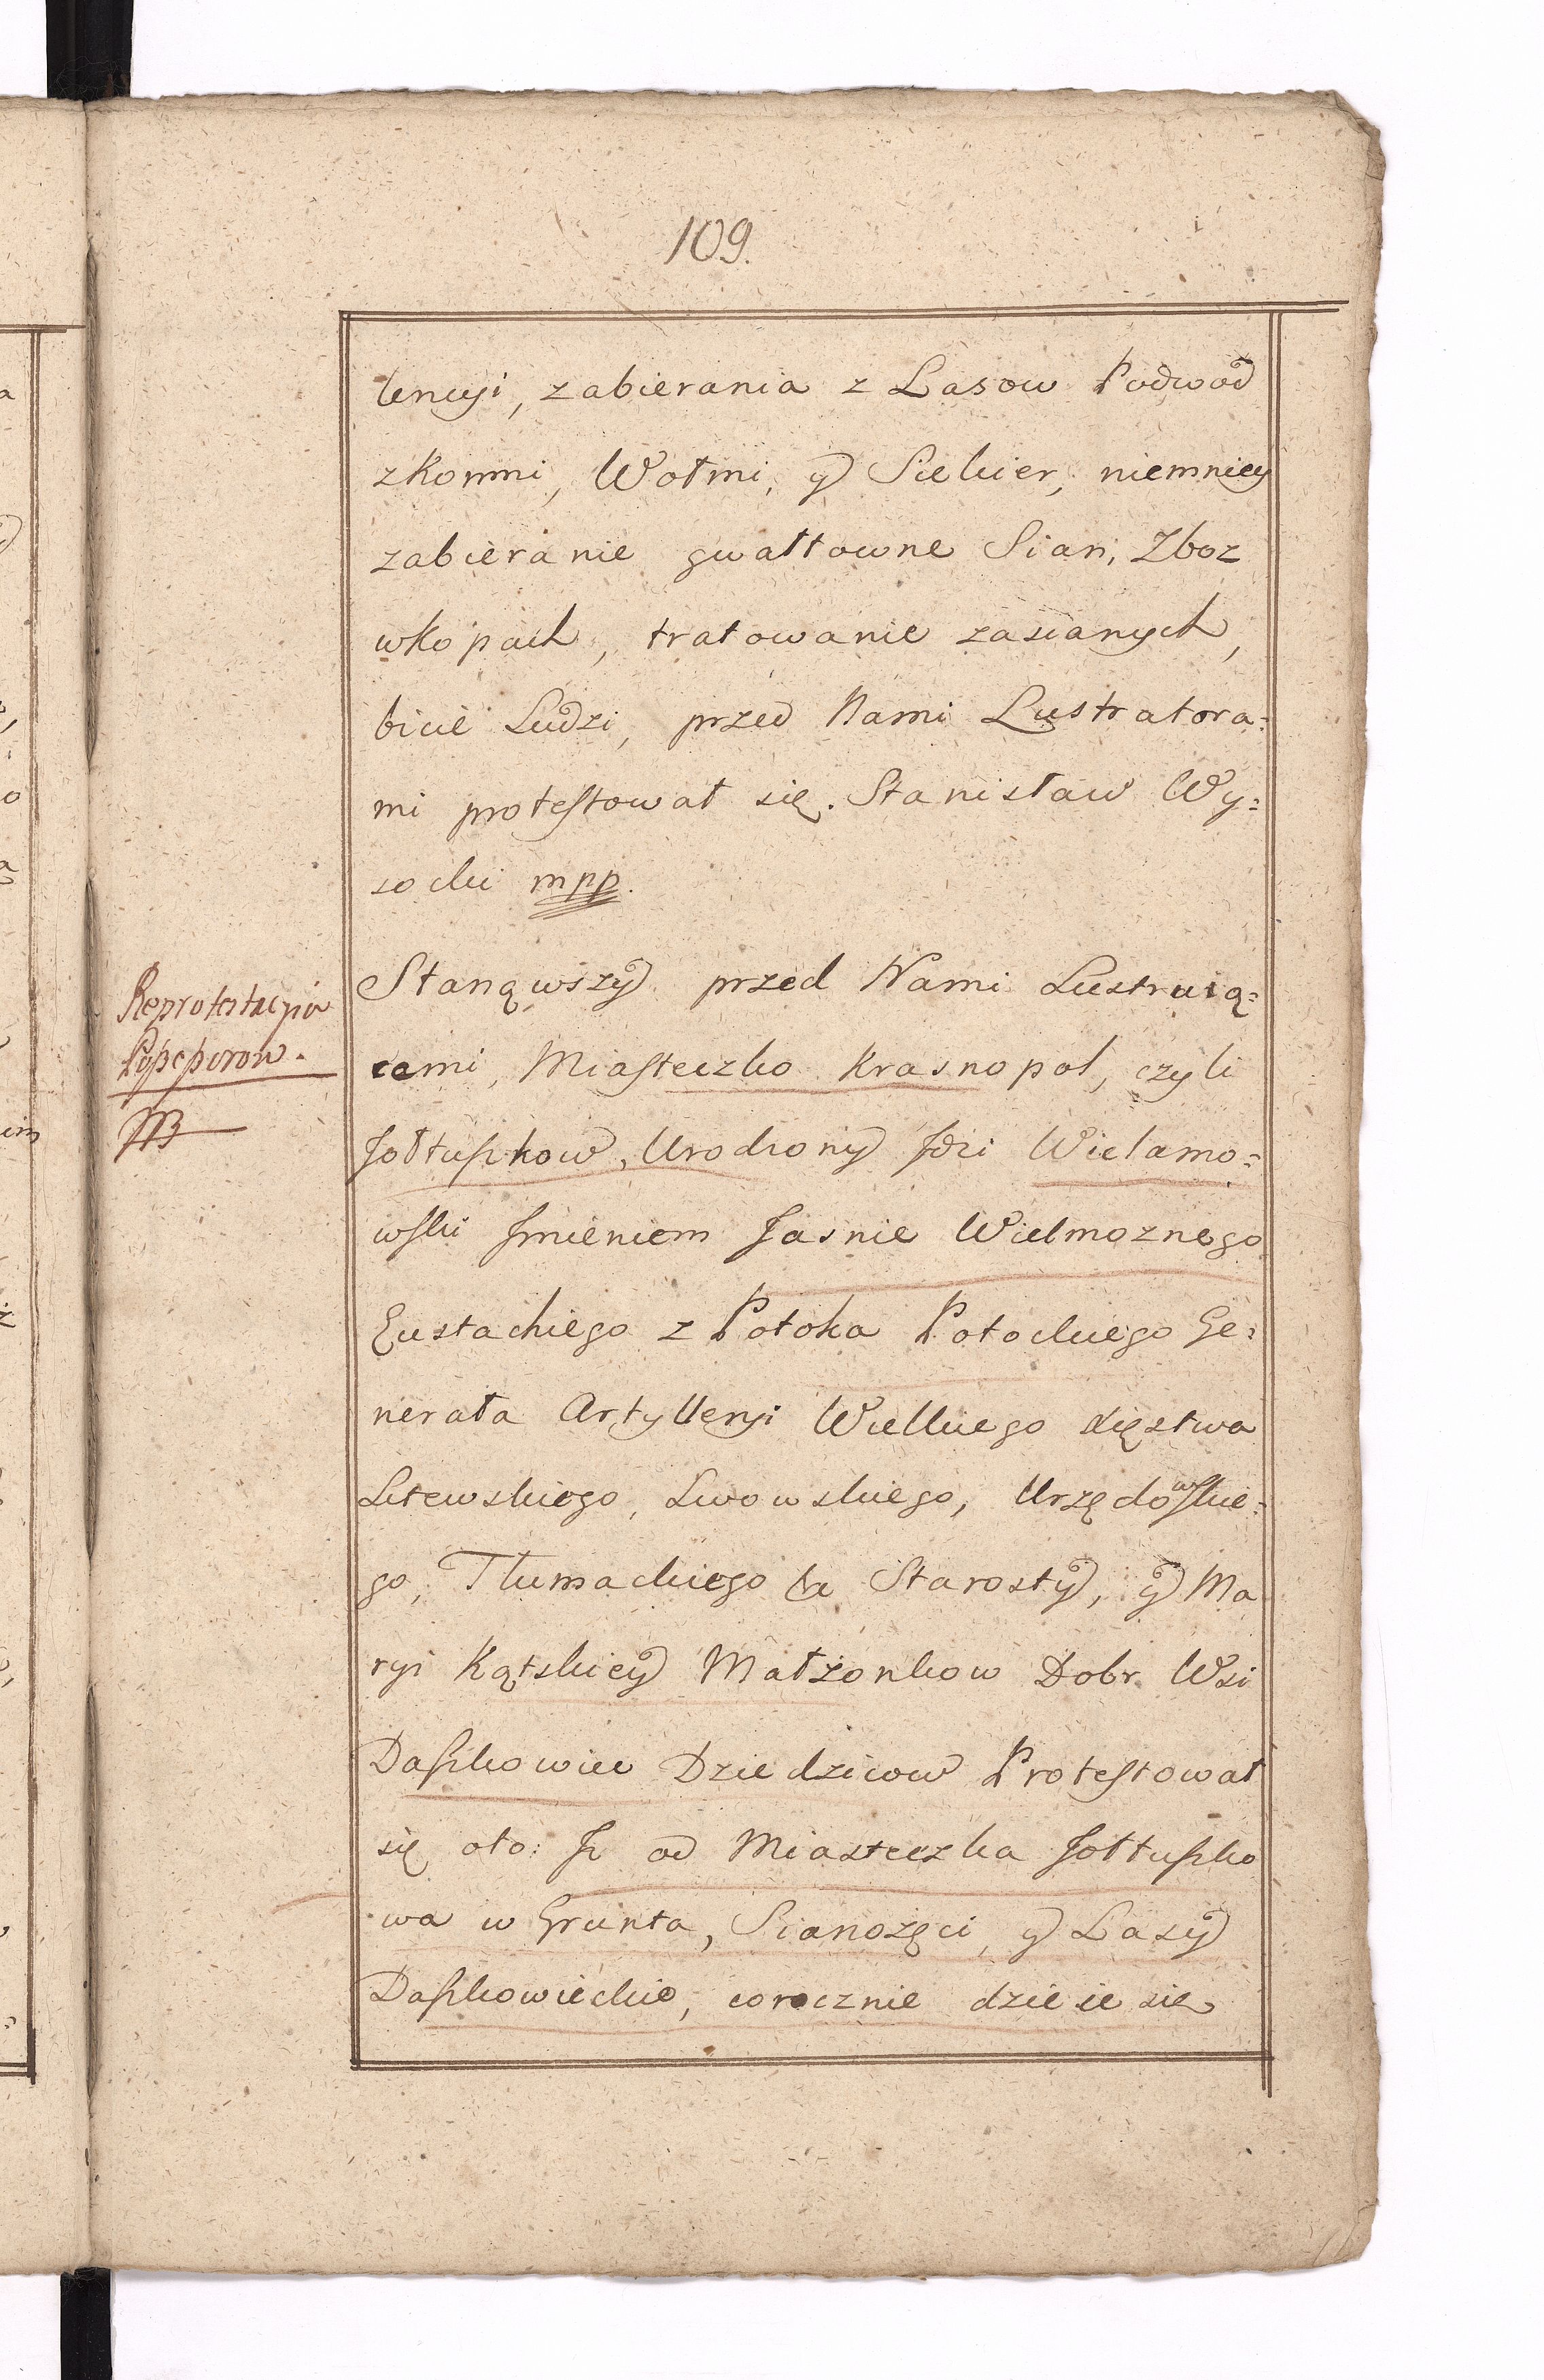 109.
lencyi, zabierania z Lasow Podwod
zkonmi, Wołmi, y Siekier, niemniey
zabieranie gwałtowne Sian, Zboz
wkopach, tratowanie zasianych,
bicie Ludzi, przed Nami Lustratora=
mi protestował się. Stanisław Wy=
socki mpp.
Stanąwszy przed Nami Lustruią=
cemi, Miasteczko Krasnopol, czyli
Jołtuszkow, Urodzony Józi Wielamo=
wski Jmieniem Jasnie Wielmoznego
Eustachiego z Potoka Potockiego Ge=
nerała Artylleryi Wielkiego Xięstwa
Litewskiego, Lwowskiego, Urzędowskie=
go, Tłumackiego &c Starosty, y Ma
ryi Kątskiey Małżonkow Dobr Wsi
Daszkowiec Dziedzicow Protestował
się oto: Jż od Miasteczka Jołtuszko
wa w Grunta, Sianozęci, y Lasy
Daszkowieckie, corocznie dzieie się
Reprotestacyia
NB